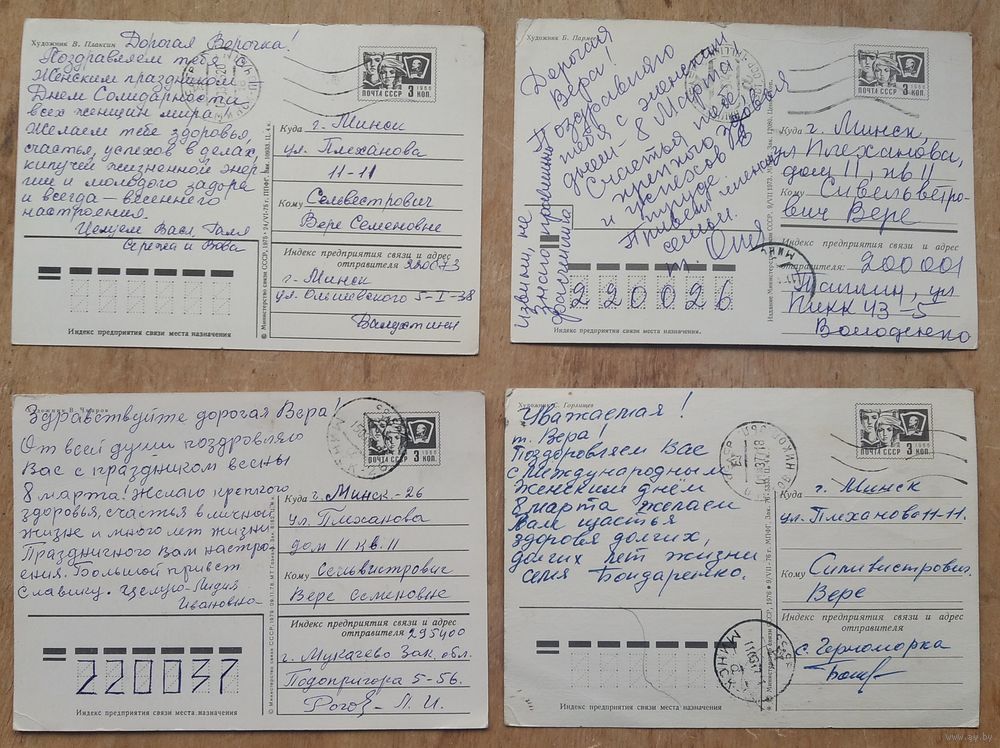 Художник В. Плаксин
Дорогая Верочка!
Поздравляем тебя с
Женским праздником
Днем Солидарности
всех женщин мира
Желаем тебе здоровья,
счастья, успехов в делах,
кипучей жизненной энер-
гии и молодого задора
и всегда – весеннего
настроения.
Целуем Вас, Галя
Сережа и Вова
ПОЧТА СССР 3 КОП.
Куда г. Минск
ул. Плеханова
11-11
Кому Селевестрович
Вере Семеновне
Индекс предприятия связи и адрес
отправителя 220073
г. Минск
ул. Ольшевского 5-I-38
Валухтины
Индекс предприятия связи места назначения
Дорогая
Вера!
Поздравляю
тебя с женским
днем – 8 Марта
Счастья тебе
крепкого здоровья
и успехов в
труде.
Привет членам
семьи.
т. Оля
Извини, не
знаю правильно
фамилии
ПОЧТА СССР 3 КОП.
Куда г. Минск,
ул Плеханова,
дом 11, кв 11
Кому Сивельветро-
вич Вере
Индекс предприятия связи и адрес
отправителя: 200001
Таллин, ул
Пикк 43-5
Володенко
220026
Индекс предприятия связи места назначения.
Здравствуйте дорогая Вера!
От всей души поздравляю
Вас с праздником весны
8 марта! Желаю крепкого
здоровья, счастья в личной
жизни и много лет жизни
Праздничного Вам настро-
ения. Большой привет
Славику. Целую Лидия
Ивановна
ПОЧТА СССР 3 КОП.
Куда г. Минск-26
ул. Плеханова
дом 11 кв. 11
Кому Сельвистрович
Вере Семеновне
Индекс предприятия связи и адрес
отправителя 295400
г. Мукачево Зак. обл.
Подопригора 5-56.
Л. И.
220037
Индекс предприятия связи места назначения
Художник С. Горлищев
Уважаемая!
т. Вера!
Поздоровляем Вас
с международным
женским днём
8 марта желаем
Вам щастья
здоровя долгих,
долгих лет жизни
семя Бондаренко.
ПОЧТА СССР 3 КОП.
Куда г. Минск
ул. Плеханова 11-11.
Кому Силивистрович
Вере
Индекс предприятия связи и адрес
отправителя
с. Черноморка
Индекс предприятия связи места назначения
www.ay.by